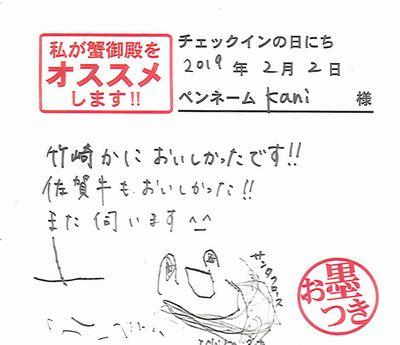 私が蟹御殿を
オススメ
します!!
チェックインの日にち
2019年2月2日
ペンネーム kani 様
竹崎かにおいしかったです!!
佐賀牛もおいしかった!!
また伺います^_^
サンタクロース
お墨つき